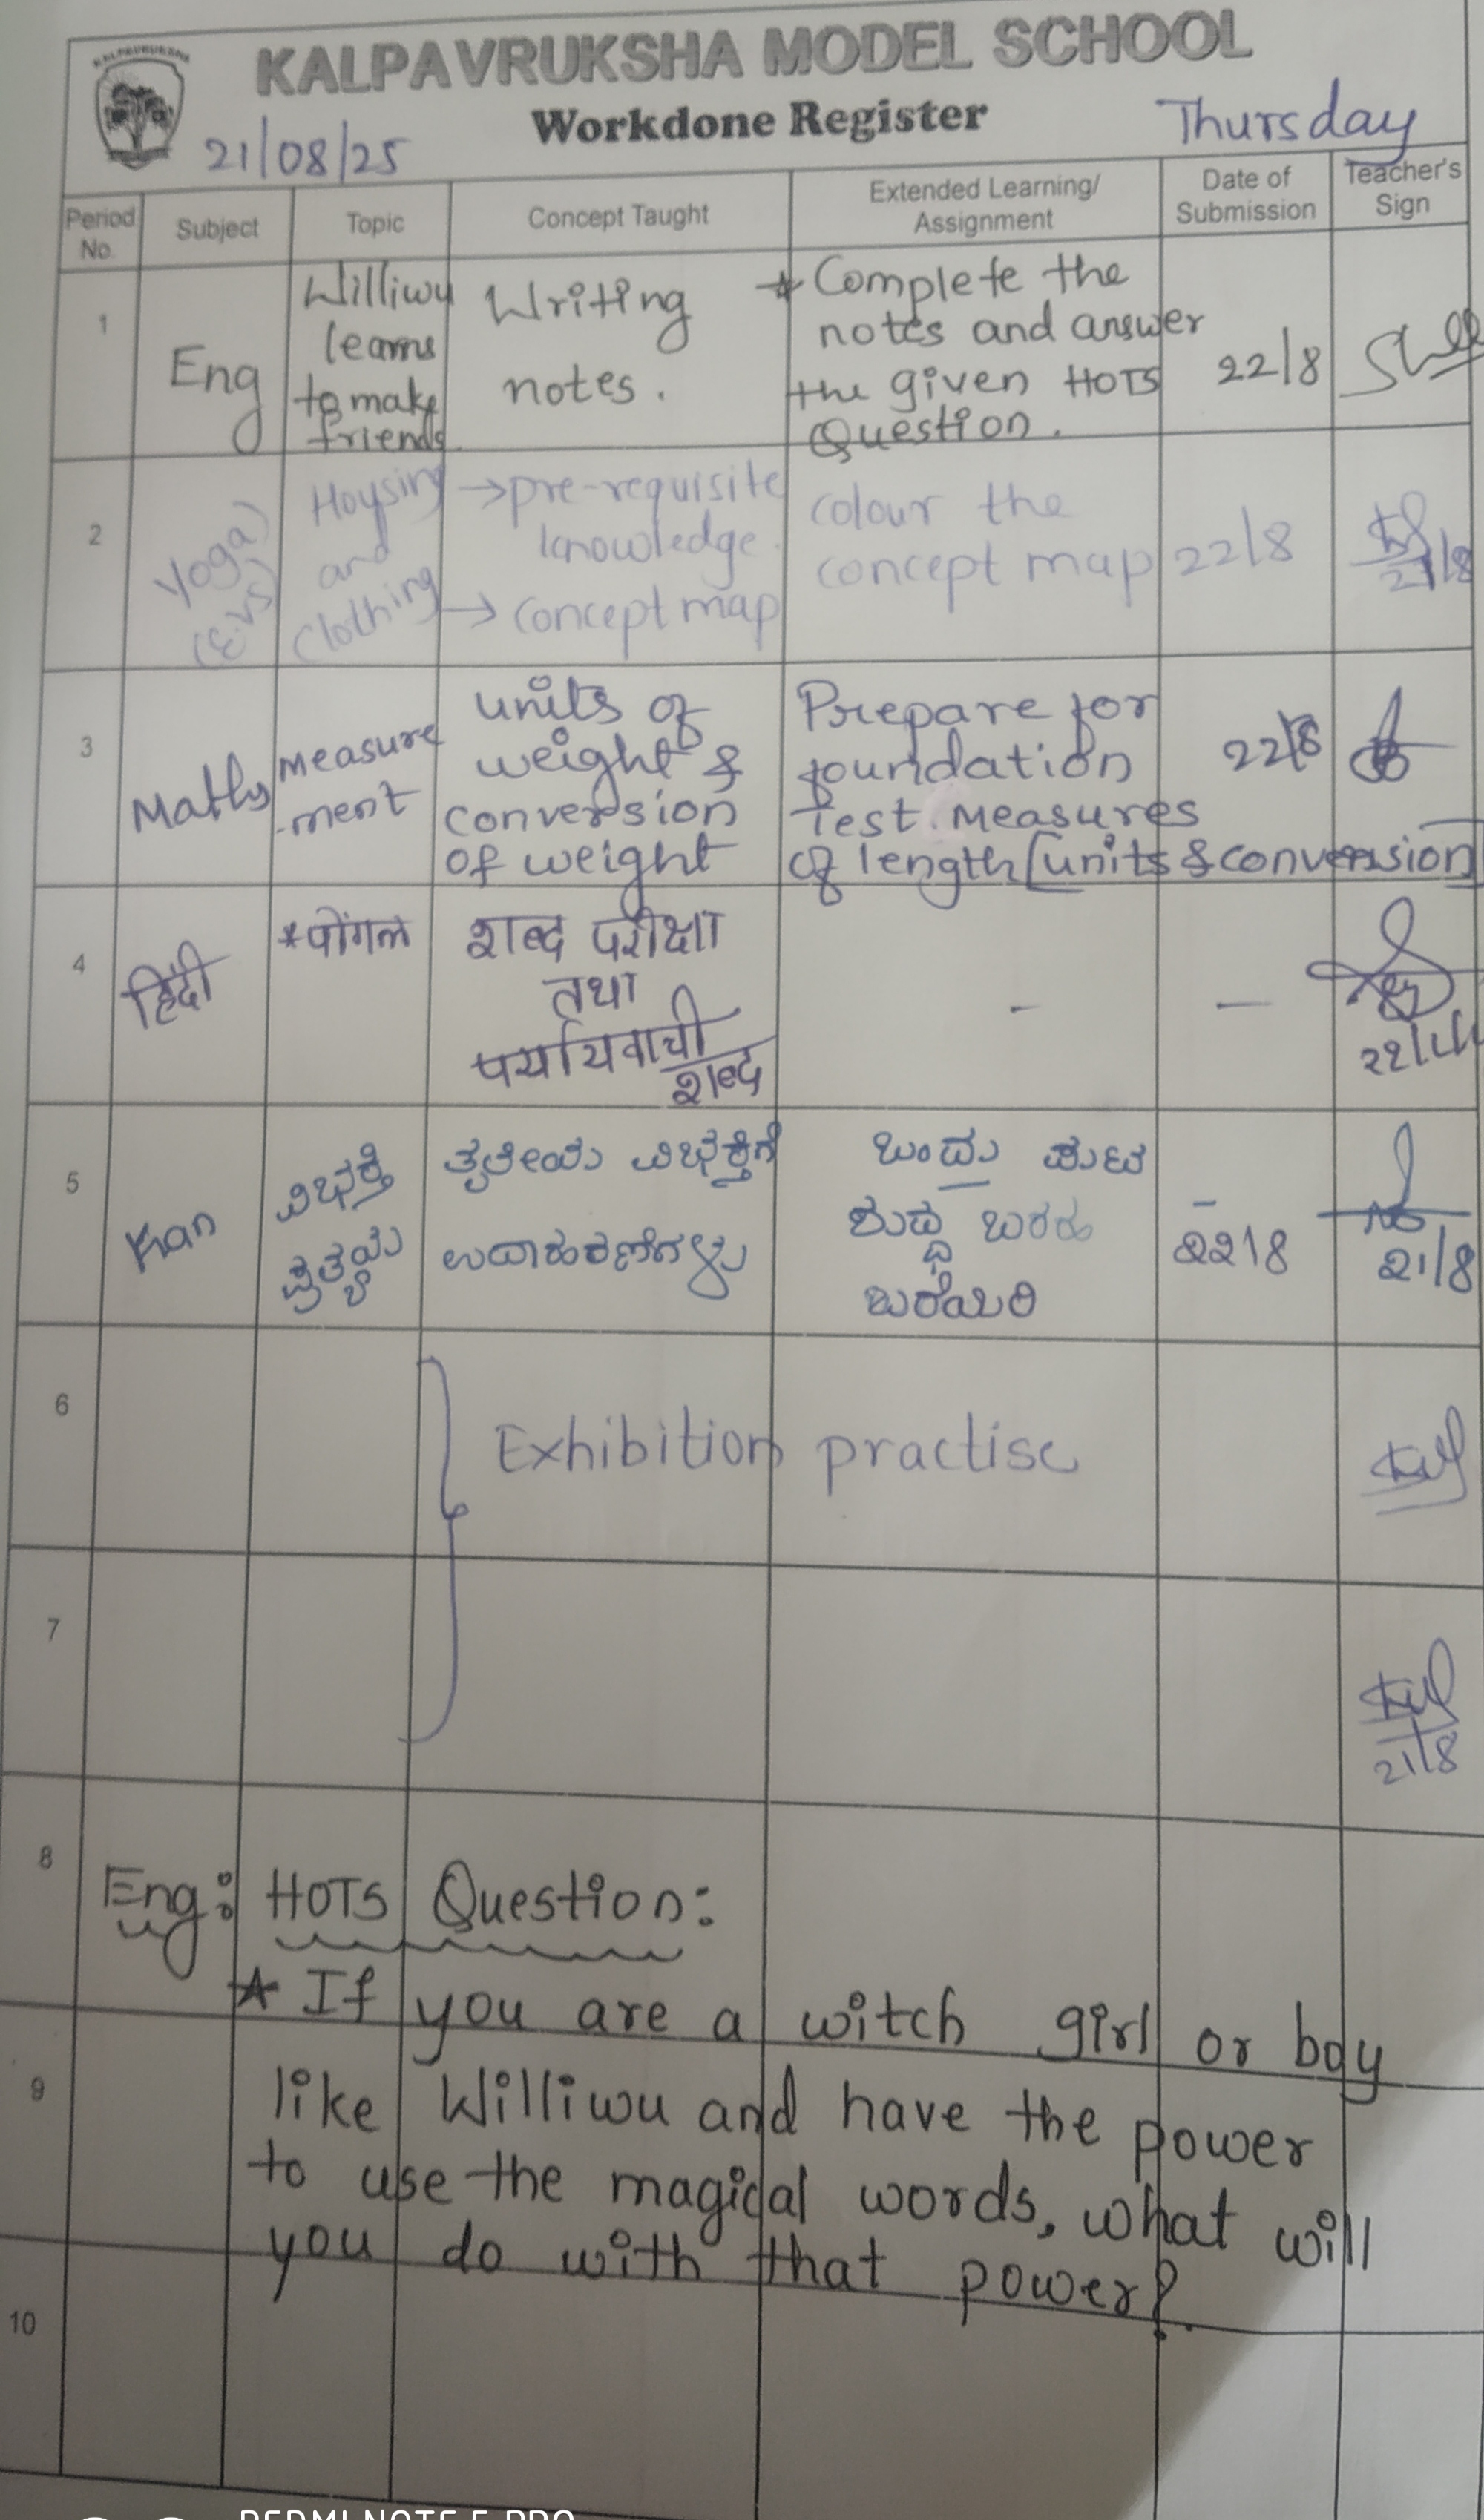 KALPAVRUKSHA
KALPAVRUKSHA MODEL SCHOOL
Workdone Register
21/08/25
Thursday
Period No.
Subject
Topic
Concept Taught
Extended Learning/ Assignment
Date of Submission
Teacher's Sign
1
Eng
Williwu
learns
to make
friends
Writing
notes.
* Complete the
notes and answer
the given HOTS
Question.
22/8
2
Yoga)
(EVS)
Housing
and
Clothing
→pre-requisite
knowledge.
→ concept map
colour the
concept map
22/8
21/8
3
Maths
Measure
-ment
units of
weight &
conversion
of weight
Prepare for
foundation
Test. Measures
of length [units & conversion]
22/8
4
हिंदी
*पोंगल
शब्द परीक्षा
तथा
पर्यायवाची
शब्द
-
-
5
Kan
ವಿಭಕ್ತಿ
ಪ್ರತ್ಯಯ
ತೃತೀಯ ವಿಭಕ್ತಿಗೆ
ಉದಾಹರಣೆಗಳು
ಒಂದು ಪುಟ
ಶುದ್ಧ ಬರಹ
ಬರೆಯಿರಿ
22/8
21/8
6
Exhibition practise
7
21/8
8
Eng: HOTS Question:
* If you are a witch girl or boy
9
like Williwu and have the power
to use the magical words, what will
you do with that power?
10
REDMI NOTE 5 PRO